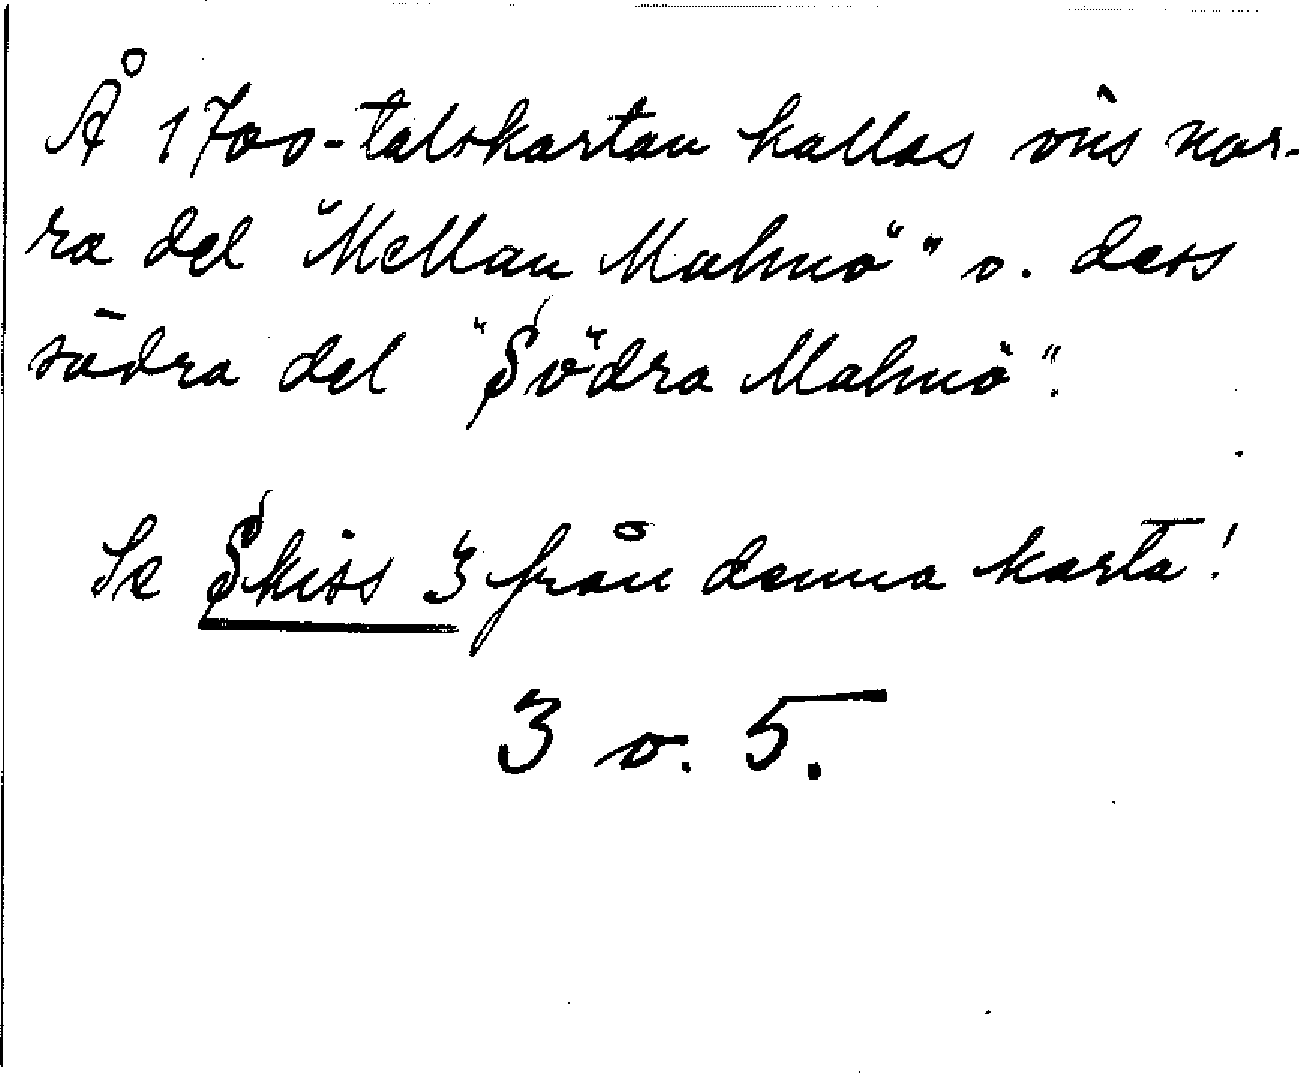 Å 1700-talskartan kallas öns nor-
ra del "Mellan Malmö" o. dess
södra del "Södra Malmö".
Se Skiss 3 från denna karta!
3 o. 5.